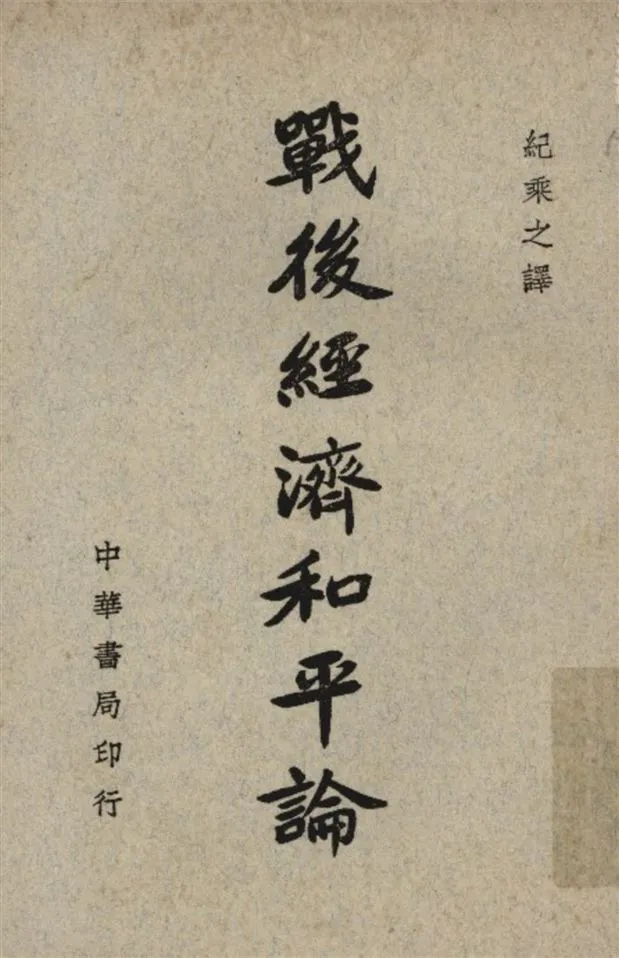 紀乘之譯
戰後經濟和平論
中華書局印行